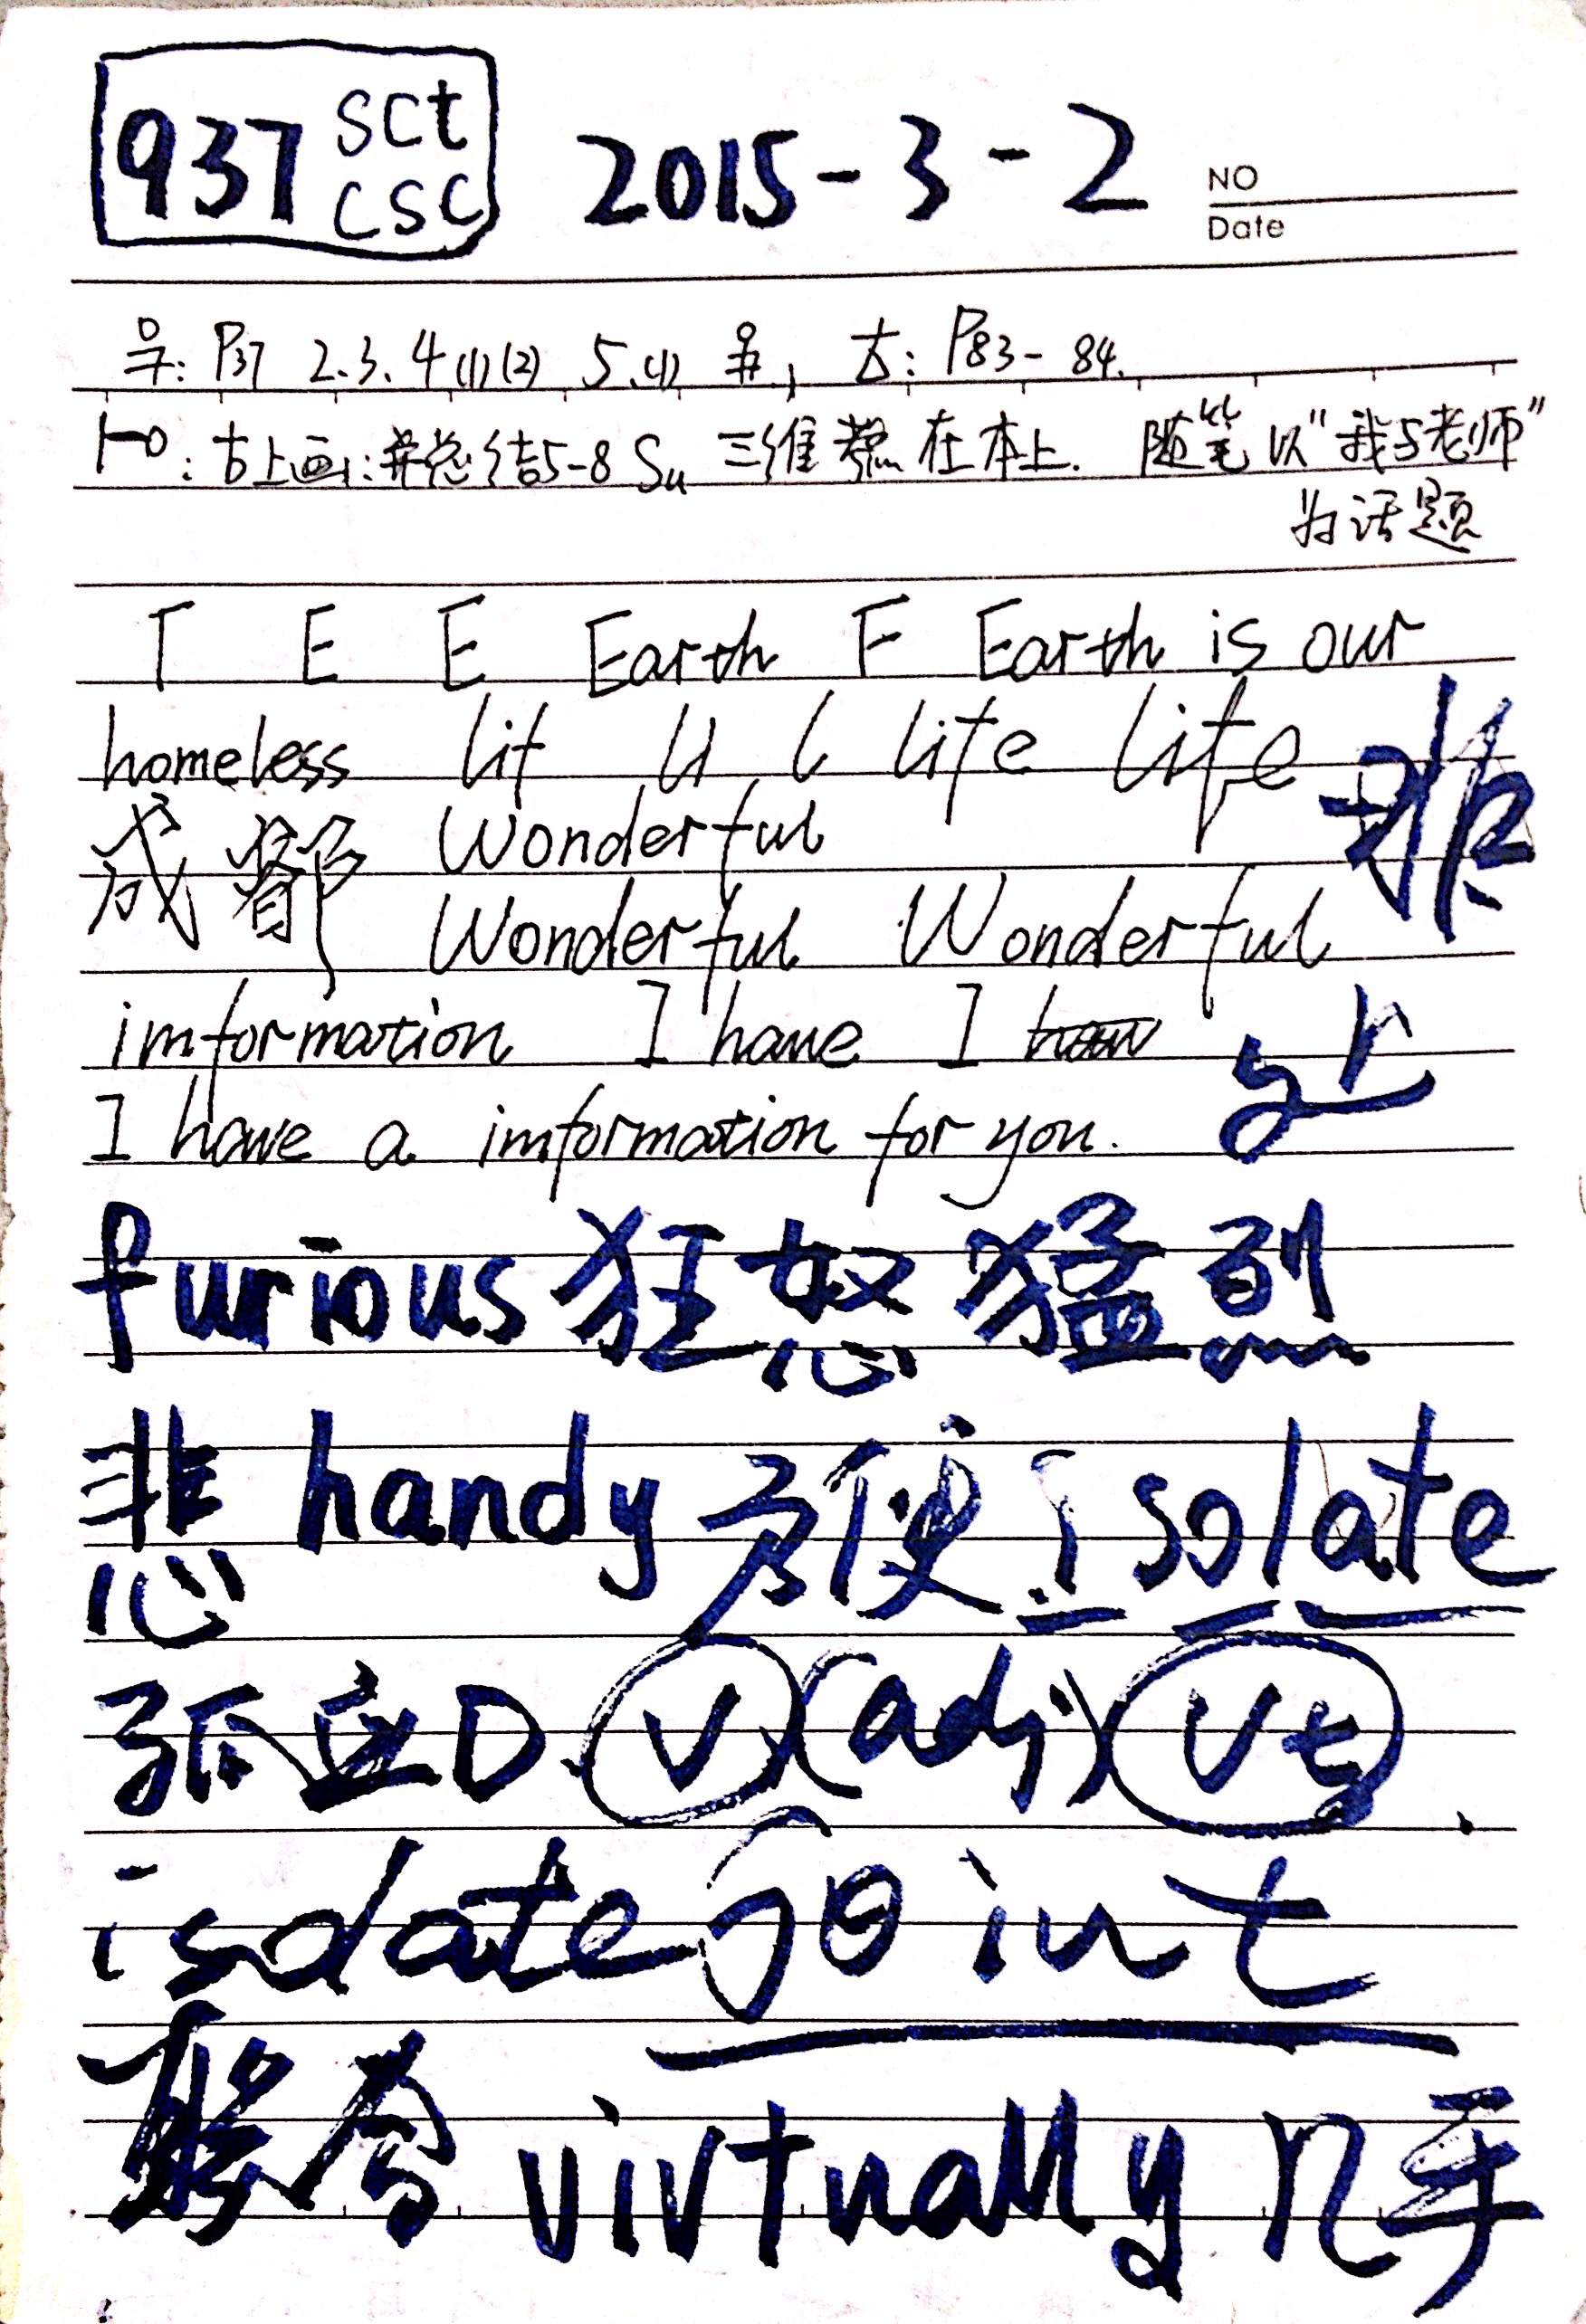 937 sct csc 2015-3-2 NO
Date
P37 2.3.4(1)(2) 5.(1) P83-84.
三维 在本上. 随笔以“我与老师”
为话题
T E E Earth F Earth is our
homeless lif li l life life 排
成都 Wonderful
Wonderful Wonderful
imformation I have I
I have a imformation for you.
furious 狂怒 猛烈
悲 handy 方便 isolate
孤立 D V (adj) Vt
isolate go in t
virtually 几乎